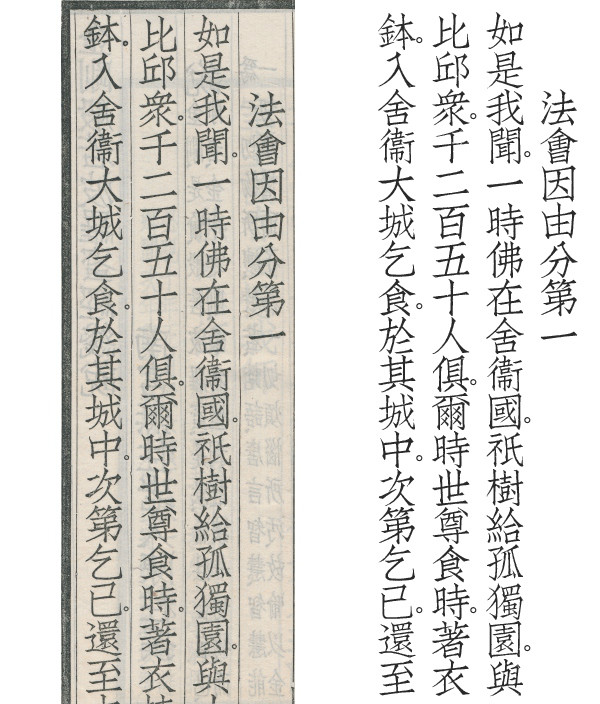 法會因由分第一
如是我聞。一時佛在舍衞國。祇樹給孤獨園。與
比邱衆。千二百五十人俱。爾時世尊食時。著衣
鉢。入舍衞大城乞食。於其城中。次第乞已。還至
法會因由分第一
如是我聞。一時佛在舍衞國。祇樹給孤獨園。與
比邱衆。千二百五十人俱。爾時世尊食時。著衣
鉢。入舍衞大城乞食。於其城中。次第乞已。還至